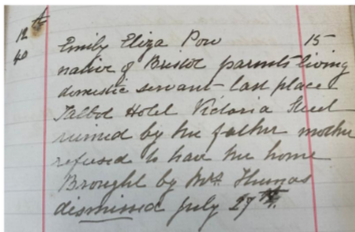 12th Emily Eliza Pow 15
40 native of Bristol parents living
domestic servant - last place
Talbot Hotel Victoria Street
ruined by her father mother
refused to have her home
Brought by Mrs Thomas
dismissed July 27th.